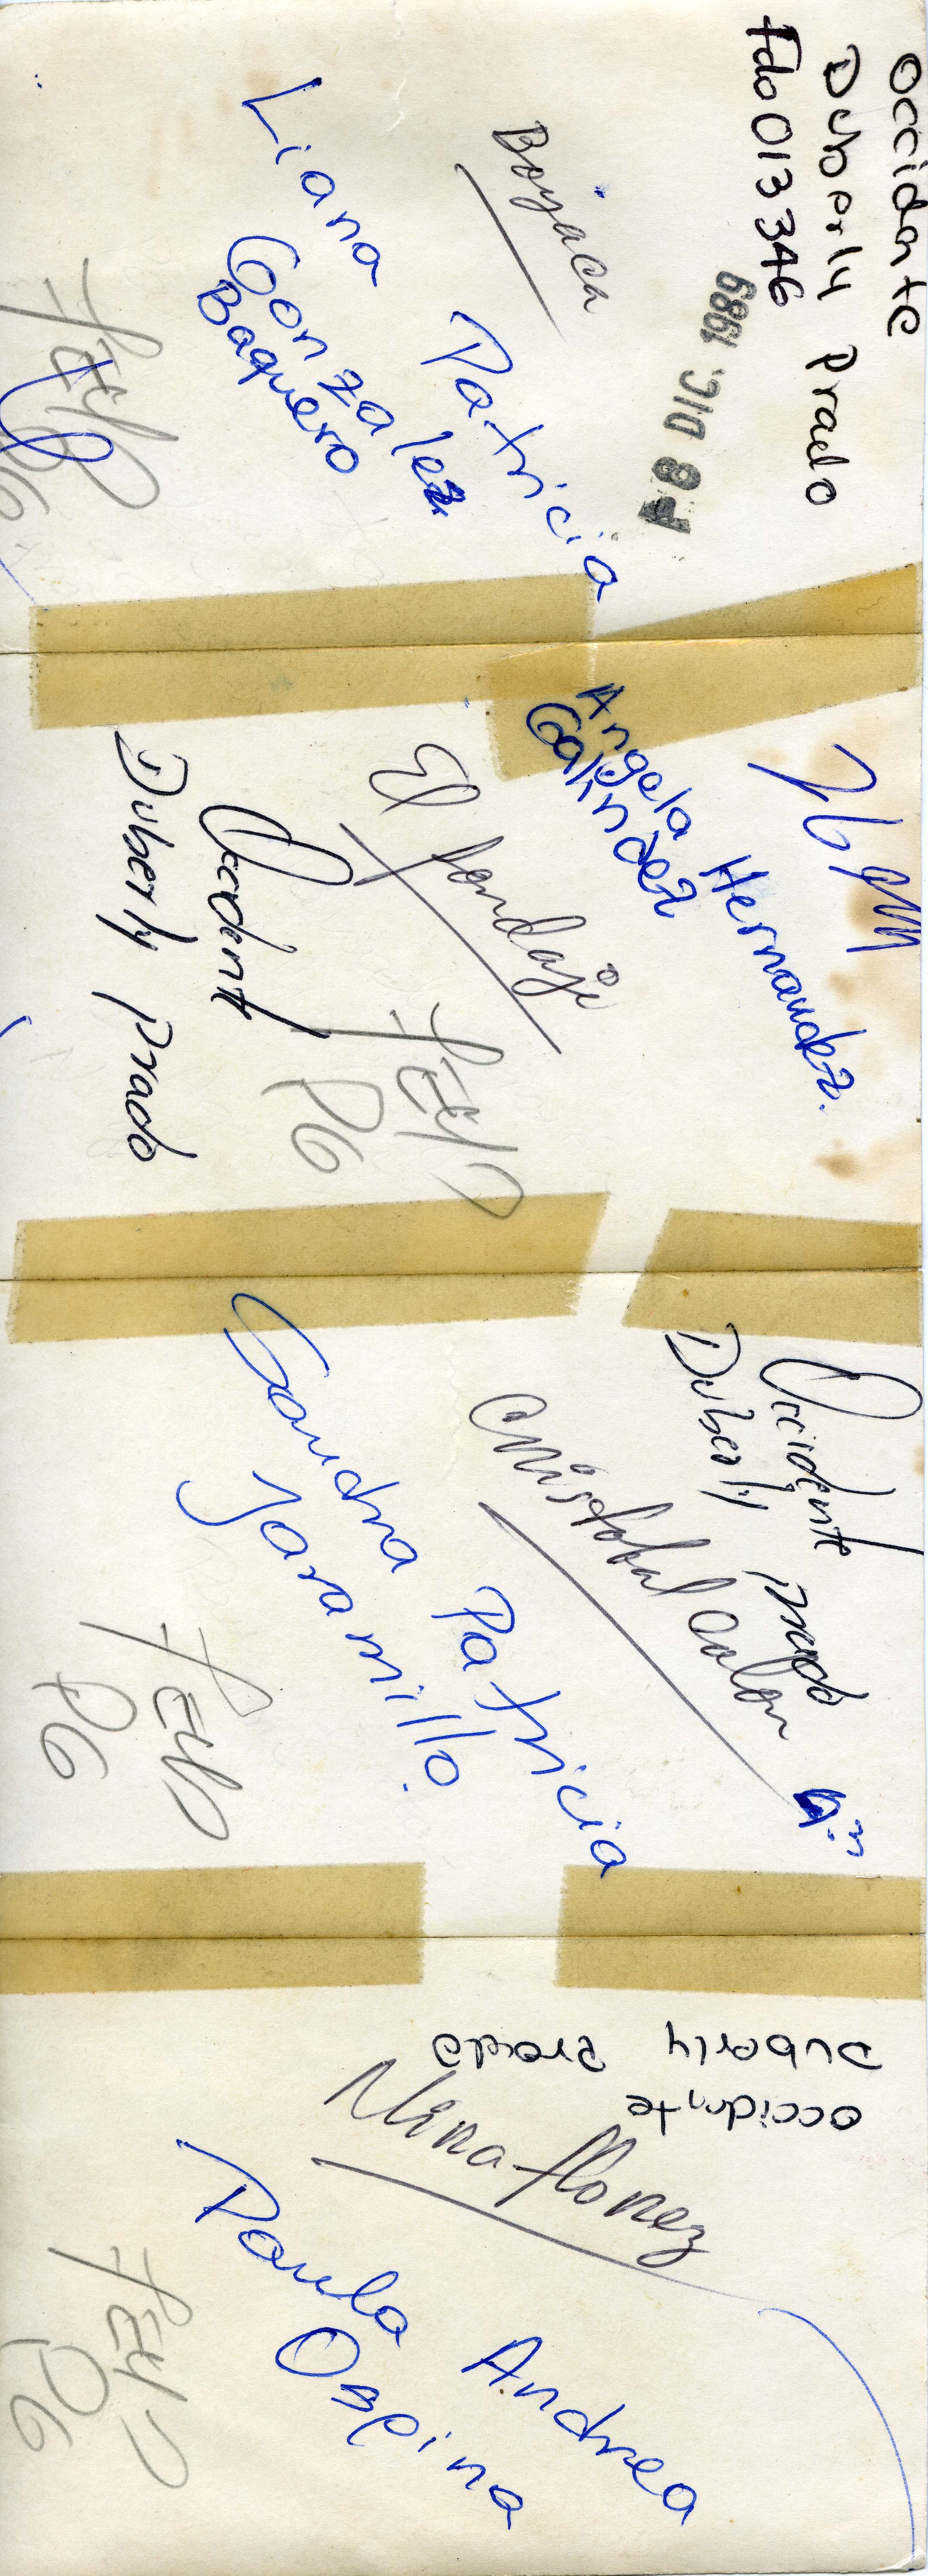 Occidente
Duberly Prado
Fdo 013346
P 8 DIC. 1989
Boyaca
Liana Patricia
Gonzalez
Baquero
Feyo
P6
Angela Hernandez.
Galindez
El fondaje
Occident
Duberly prado
Feyo
P6
Occidente prado
Duberly
Cristobal Colon
Sandra Patricia
Jaramillo.
Feyo
P6
Duberly Prado
Occidnte
Mina flonez
Paula Andrea
Ospina
Feyo
P6